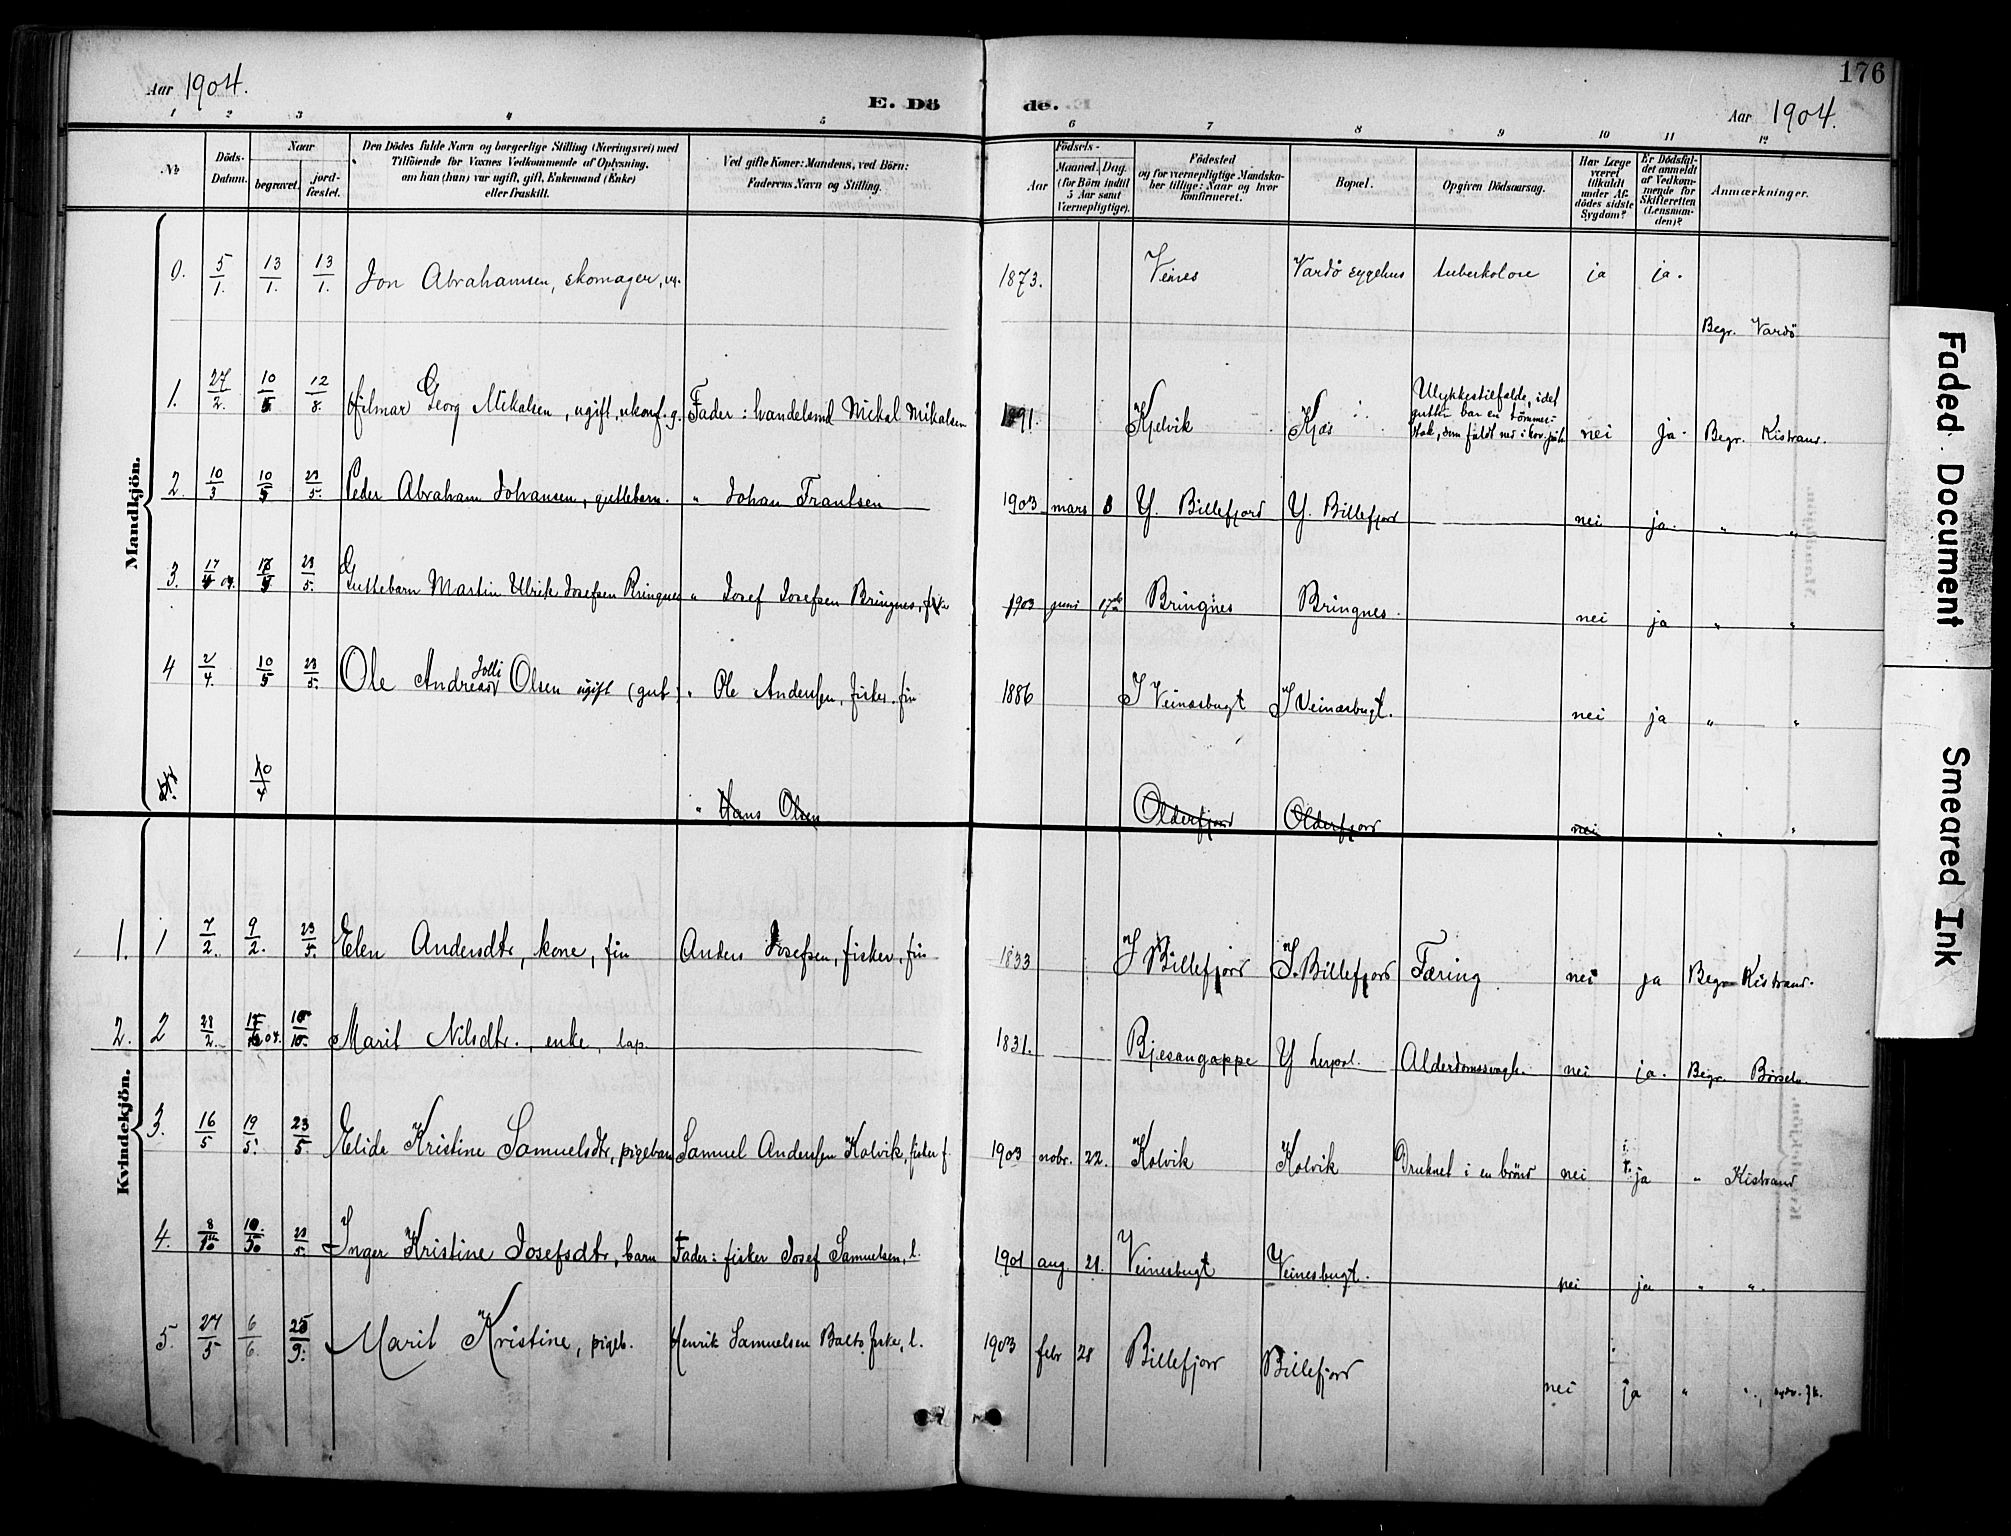 176
Aar 1904.
E. Döde.
Aar 1904.
1 2 3 4 5 6 7 8 9 10 11 12
No. Döds-Datum. Naar begravet. jord-fæstet. Den Dödes fulde Navn og borgerlige Stilling (Næringsvei) med Tilföiende for Voxnes Vedkommende af Oplysning, om han (hun) var ugift, gift, Enkemand (Enke) eller fraskilt. Ved gifte Koner: Mandens, ved Börn: Faderens Navn og Stilling. Födsels- Aar Maaned. Dag. (for Börn indtil 5 Aar samt Værnepligtige). Födested og for værnepligtige Mandskaber tillige: Naar og hvor konfirmeret. Bopæl. Opgiven Dödsaarsag. Har Læge været tilkaldt under Afdödes sidste Sygdom? Er Dödsfaldet anmeldt af Vedkommende for Skifteretten (Lensmanden)? Anmærkninger.
Mandkjön.
0. 5/1. 13/1. 13/1. Jon Abrahamsen, skomager, ug. 1873. Veines Vardö sygehus tuberkolose ja ja. Begr. Vardö
1. 27/2. 10/5 12/8. Hilmar Georg Mikalsen, ugift, ukonf. g. Fader: handelsmd Mickal Mikalsen 1891. Kjelvik Kjæs Ulykkestilfælde, idet gutten bar en tömmerstok, som faldt ned i nei ja. Begr. Kistrand.
2. 10/3 10/5 23/5. Peder Abraham Johansen, guttebarn. " Johan Frantsen 1903 mars 8 Y. Billefjord Y. Billefjord nei ja. " "
3. 17/4 04. 23/5. Guttebarn Martin Ulrik Josefsen Bringnes " Josef Josefsen Bringnes, fisker 1903 juni 17de Bringnes Bringnes. nei ja " "
4 2/4. 10/5 23/5. Ole Andreas Jolli Olsen ugift (gut) " Ole Andersen, fisker. fin 1886 I Veinæsbugt I Veinæsbugt. nei ja " "
10/4 " Hans Olsen Olderfjord Olderfjord nei " "
Kvindekjön.
1. 1 7/2. 9/2. 23/5. Elen Andersdtr, kone, fin Anders Josefsen, fisker, fin 1833 I Billefjord I. Billefjord Tæring nei ja Begr Kistrand.
2. 2 28/2. 04. Marit Nilsdtr., enke, lap. 1831. Bjesangappe Y Alderdomssvagh. nei ja. Begr. Börselv.
3. 16/5 19/5. 23/5. Elide Kristine Samuelsdtr, pigebarn Samuel Andersen Kolvik, fisker f. 1903 nobr. 22. Kolvik Kolvik Druknet i en brönd nei ja " Kistrand
4. 23/5. Inger Kristine Josefsdtr, barn Fader: fisker Josef Samuelsen, l. 1901 aug. 21. Veinesbugt Veinesbugt. nei ja " ".
5. 27/5 6/6. 25/9. Marit Kristine, pigeb. Henrik Samuelsen Balto fisker, l. 1903 febr 28 Billefjord Billefjord nei ja " "
Faded Document
Smeared Ink